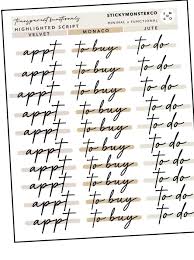 transparent functionals
HIGHLIGHTED SCRIPT
STICKYMONSTERCO
MINIMAL + FUNCTIONAL
VELVET MONACO JUTE
appt to buy to do
appt to buy to do
appt to buy to do
appt to buy to do
appt to buy to do
appt to buy to do
appt to buy to do
appt to buy to do
appt to buy to do
appt to buy to do